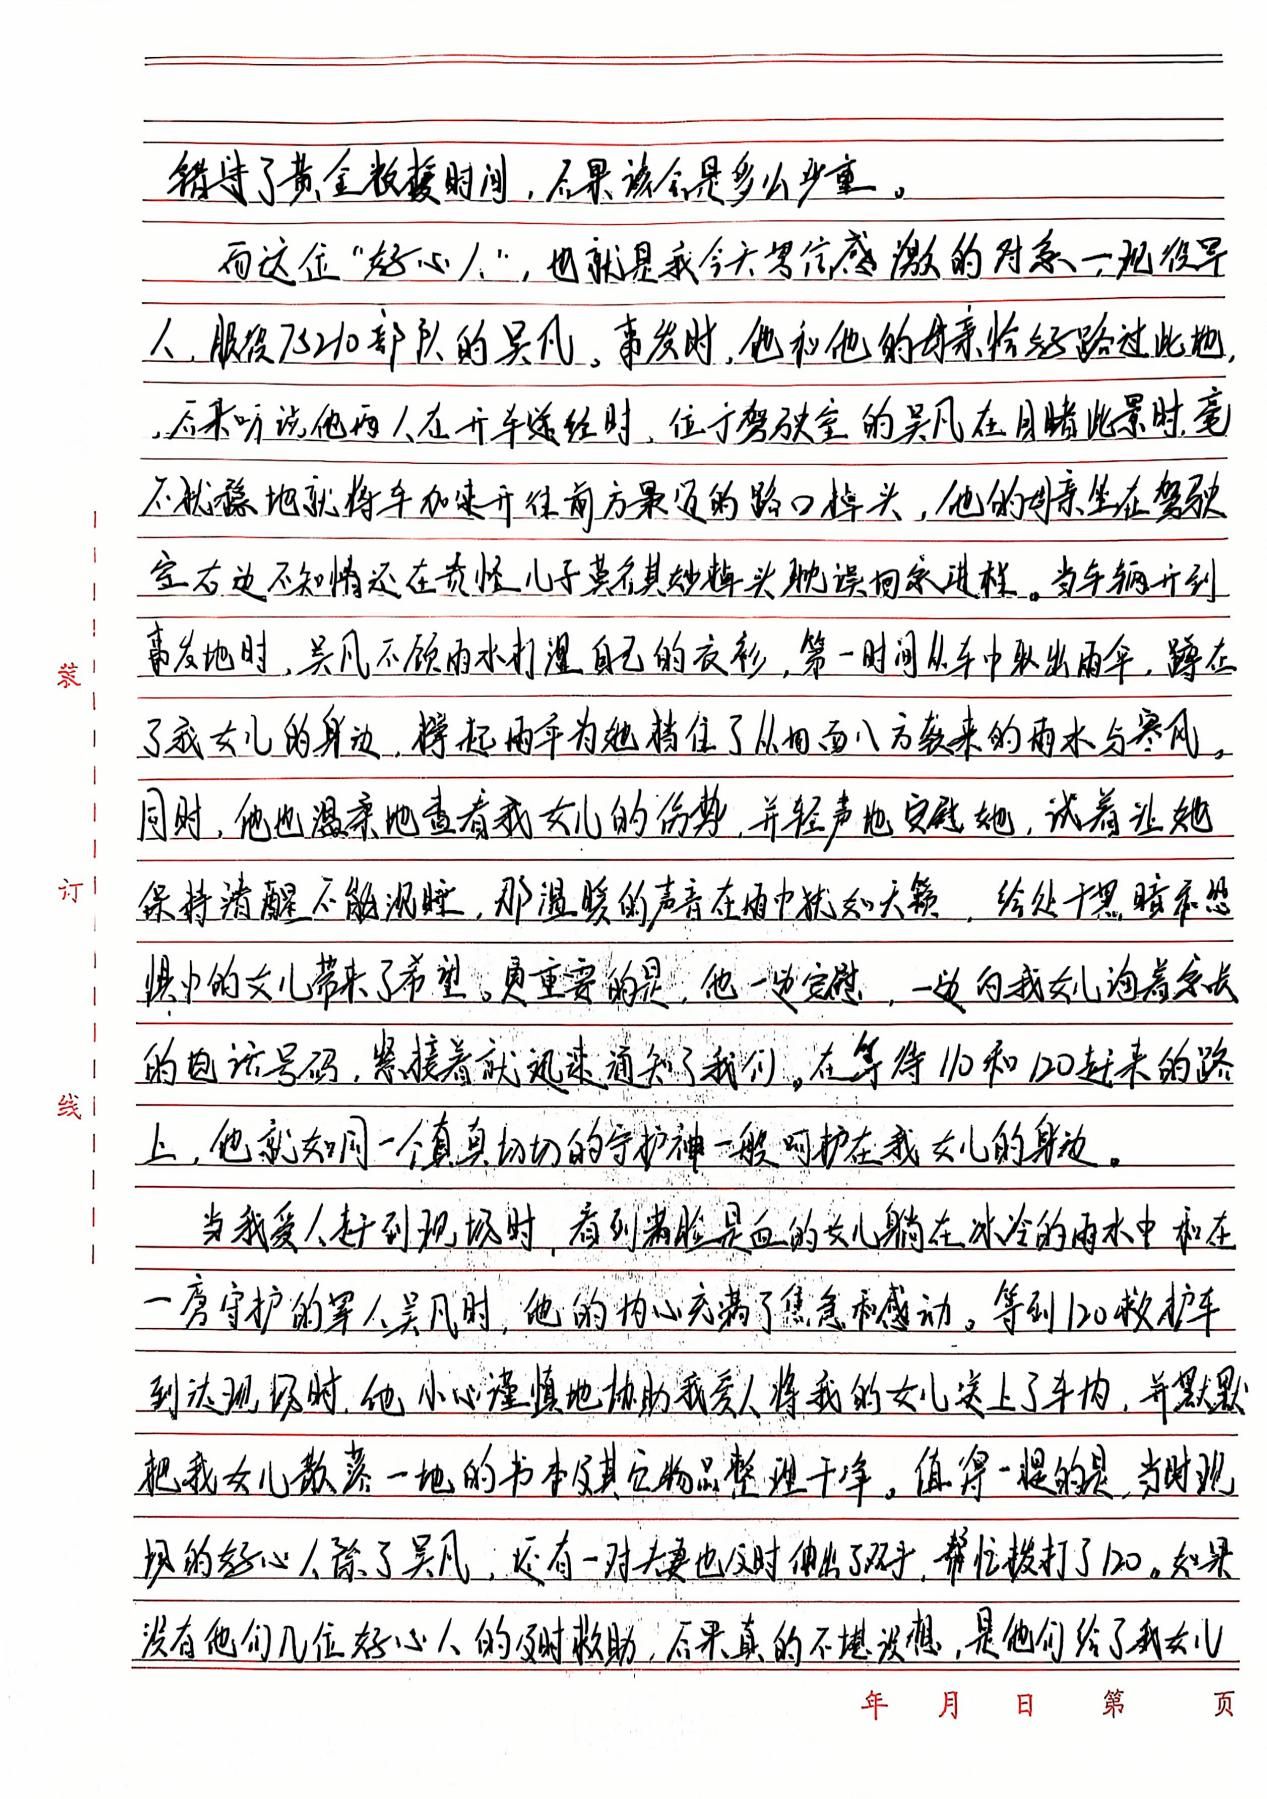 错过了黄金救援时间，后果该会是多么严重。
而这位“好心人”，也就是我今天写信感激的对象—现役军
人，服役75210部队的吴凡。事发时，他和他的母亲恰好路过此地，
后来听说他两人在开车途经时，位于驾驶室的吴凡在目睹此景时，毫
不犹豫地就将车加速开往前方最近的路口掉头，他的母亲坐在驾驶
室右边不知情还在责怪儿子莫名其妙掉头耽误回家进程。当车辆开到
事发地时，吴凡不顾雨水打湿自己的衣衫，第一时间从车中取出雨伞，蹲在
了我女儿的身边，撑起雨伞为她挡住了从四面八方袭来的雨水与寒风。
同时，他也温柔地查看我女儿的伤势，并轻声地安慰她，试着让她
保持清醒不能沉睡，那温暖的声音在雨中犹如天籁，给处于黑暗和恐
惧中的女儿带来了希望。更重要的是，他一边安慰，一边向我女儿询着家长
的电话号码，紧接着就迅速通知了我们。在等待110和120赶来的路
上，他就如同一个真真切切的守护神一般呵护在我女儿的身边。
当我爱人赶到现场时，看到满脸是血的女儿躺在冰冷的雨水中和在
一旁守护的军人吴凡时，他的内心充满了焦急和感动。等到120救护车
到达现场时，他小心谨慎地协助我爱人将我的女儿送上了车内，并默默
把我女儿散落一地的书本及其它物品整理干净。值得一提的是，当时现
场的好心人除了吴凡，还有一对夫妻也及时伸出了双手，帮忙拨打了120。如果
没有他们几位好心人的及时救助，后果真的不堪设想，是他们给了我女儿
装
订
线
年 月 日 第 页